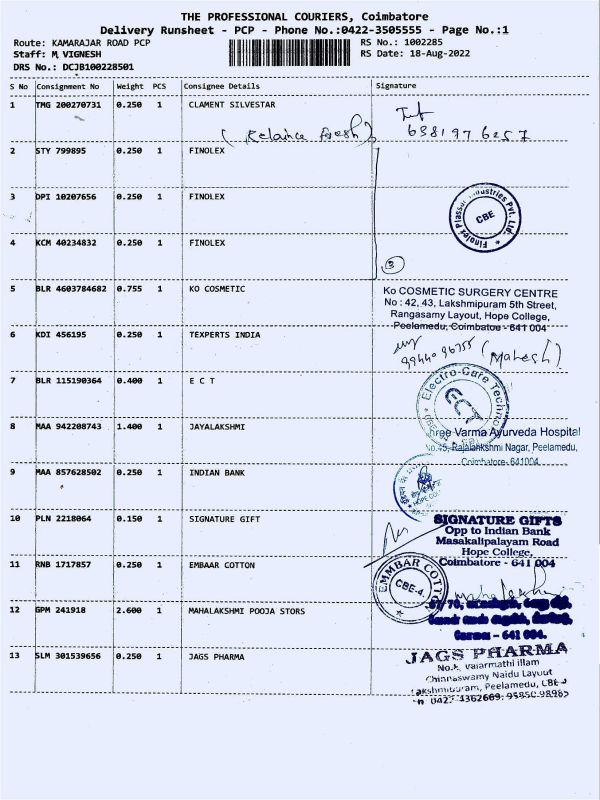 THE PROFESSIONAL COURIERS, Coimbatore
Delivery Runsheet - PCP - Phone No.:0422-3505555 - Page No.:1
Route: KAMARAJAR ROAD PCP
RS No.: 1002285
Staff: M, VIGNESH
RS Date: 18-Aug-2022
DRS No.: DCJB100228501
S No Consignment No Weight PCS Consignee Details Signature
1 TMG 200270731 0.250 1 CLAMENT SILVESTAR
(Relaince fresh) 638197 6257
2 STY 799895 0.250 1 FINOLEX
3 DPI 10207656 0.250 1 FINOLEX
Finolex Plasson Industries Pvt. Ltd.
CBE
4 KCM 40234832 0.250 1 FINOLEX
3
5 BLR 4603784682 0.755 1 KO COSMETIC
Ko COSMETIC SURGERY CENTRE
No : 42, 43, Lakshmipuram 5th Street,
Rangasamy Layout, Hope College,
Peelamedu, Coimbatoe - 641 004
6 KDI 456195 0.250 1 TEXPERTS INDIA
99440 96755 (Mahesh)
7 BLR 115190364 0.400 1 E C T
Electro-Care Techno
ECT
8 MAA 942208743 1.400 1 JAYALAKSHMI
hree Varma Ayurveda Hospital
No.45, Rajalakshmi Nagar, Peelamedu,
Coimbatore- 641004
9 MAA 857628502 0.250 1 INDIAN BANK
HOPE
10 PLN 2218064 0.150 1 SIGNATURE GIFT
SIGNATURE GIFTS
Opp to Indian Bank
Masakalipalayam Road
Hope College,
Coimbatore - 641 004
11 RNB 1717857 0.250 1 EMBAAR COTTON
EMMBAR COTT
CBE-4.
12 GPM 241918 2.600 1 MAHALAKSHMI POOJA STORS
- 641 004.
13 SLM 301539656 0.250 1 JAGS PHARMA
JAGS PHARMA
Valarmathi illam
Chinnaswamy Naidu Layout
Lakshmipuram, Peelamedu, CBE